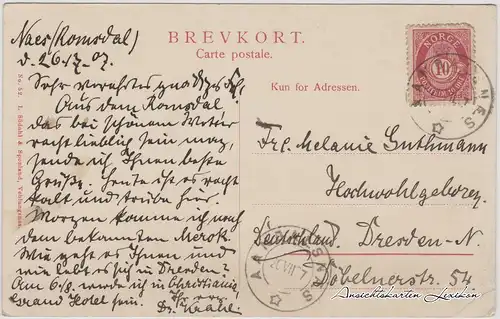 Naes (Romsdal)
d. 26.7.07.
Sehr verehrtes gnädiges Frl.
Aus dem Romsdal
das bei schönem Wetter
recht lieblich sein mag,
sende ich Ihnen beste
Grüße. Heute ist es recht
kalt und trübe hier.
Morgen komme ich nach
dem bekannten Merok.
Wie geht es Ihnen und
wie lebt es sich in Dresden?
Am 6/8. werde ich in Christiania
Grand Hotel sein.
Dr.
No. 52. L. Södahl & Spenland, Veblungsnæs.
BREVKORT.
Carte postale.
Kun for Adressen.
NORGE
10
Frl. Melanie Guthmann
Hochwohlgeboren
Deutschland. Dresden-N.
Döbelnerstr. 54
Ansichtskarten Lexikon